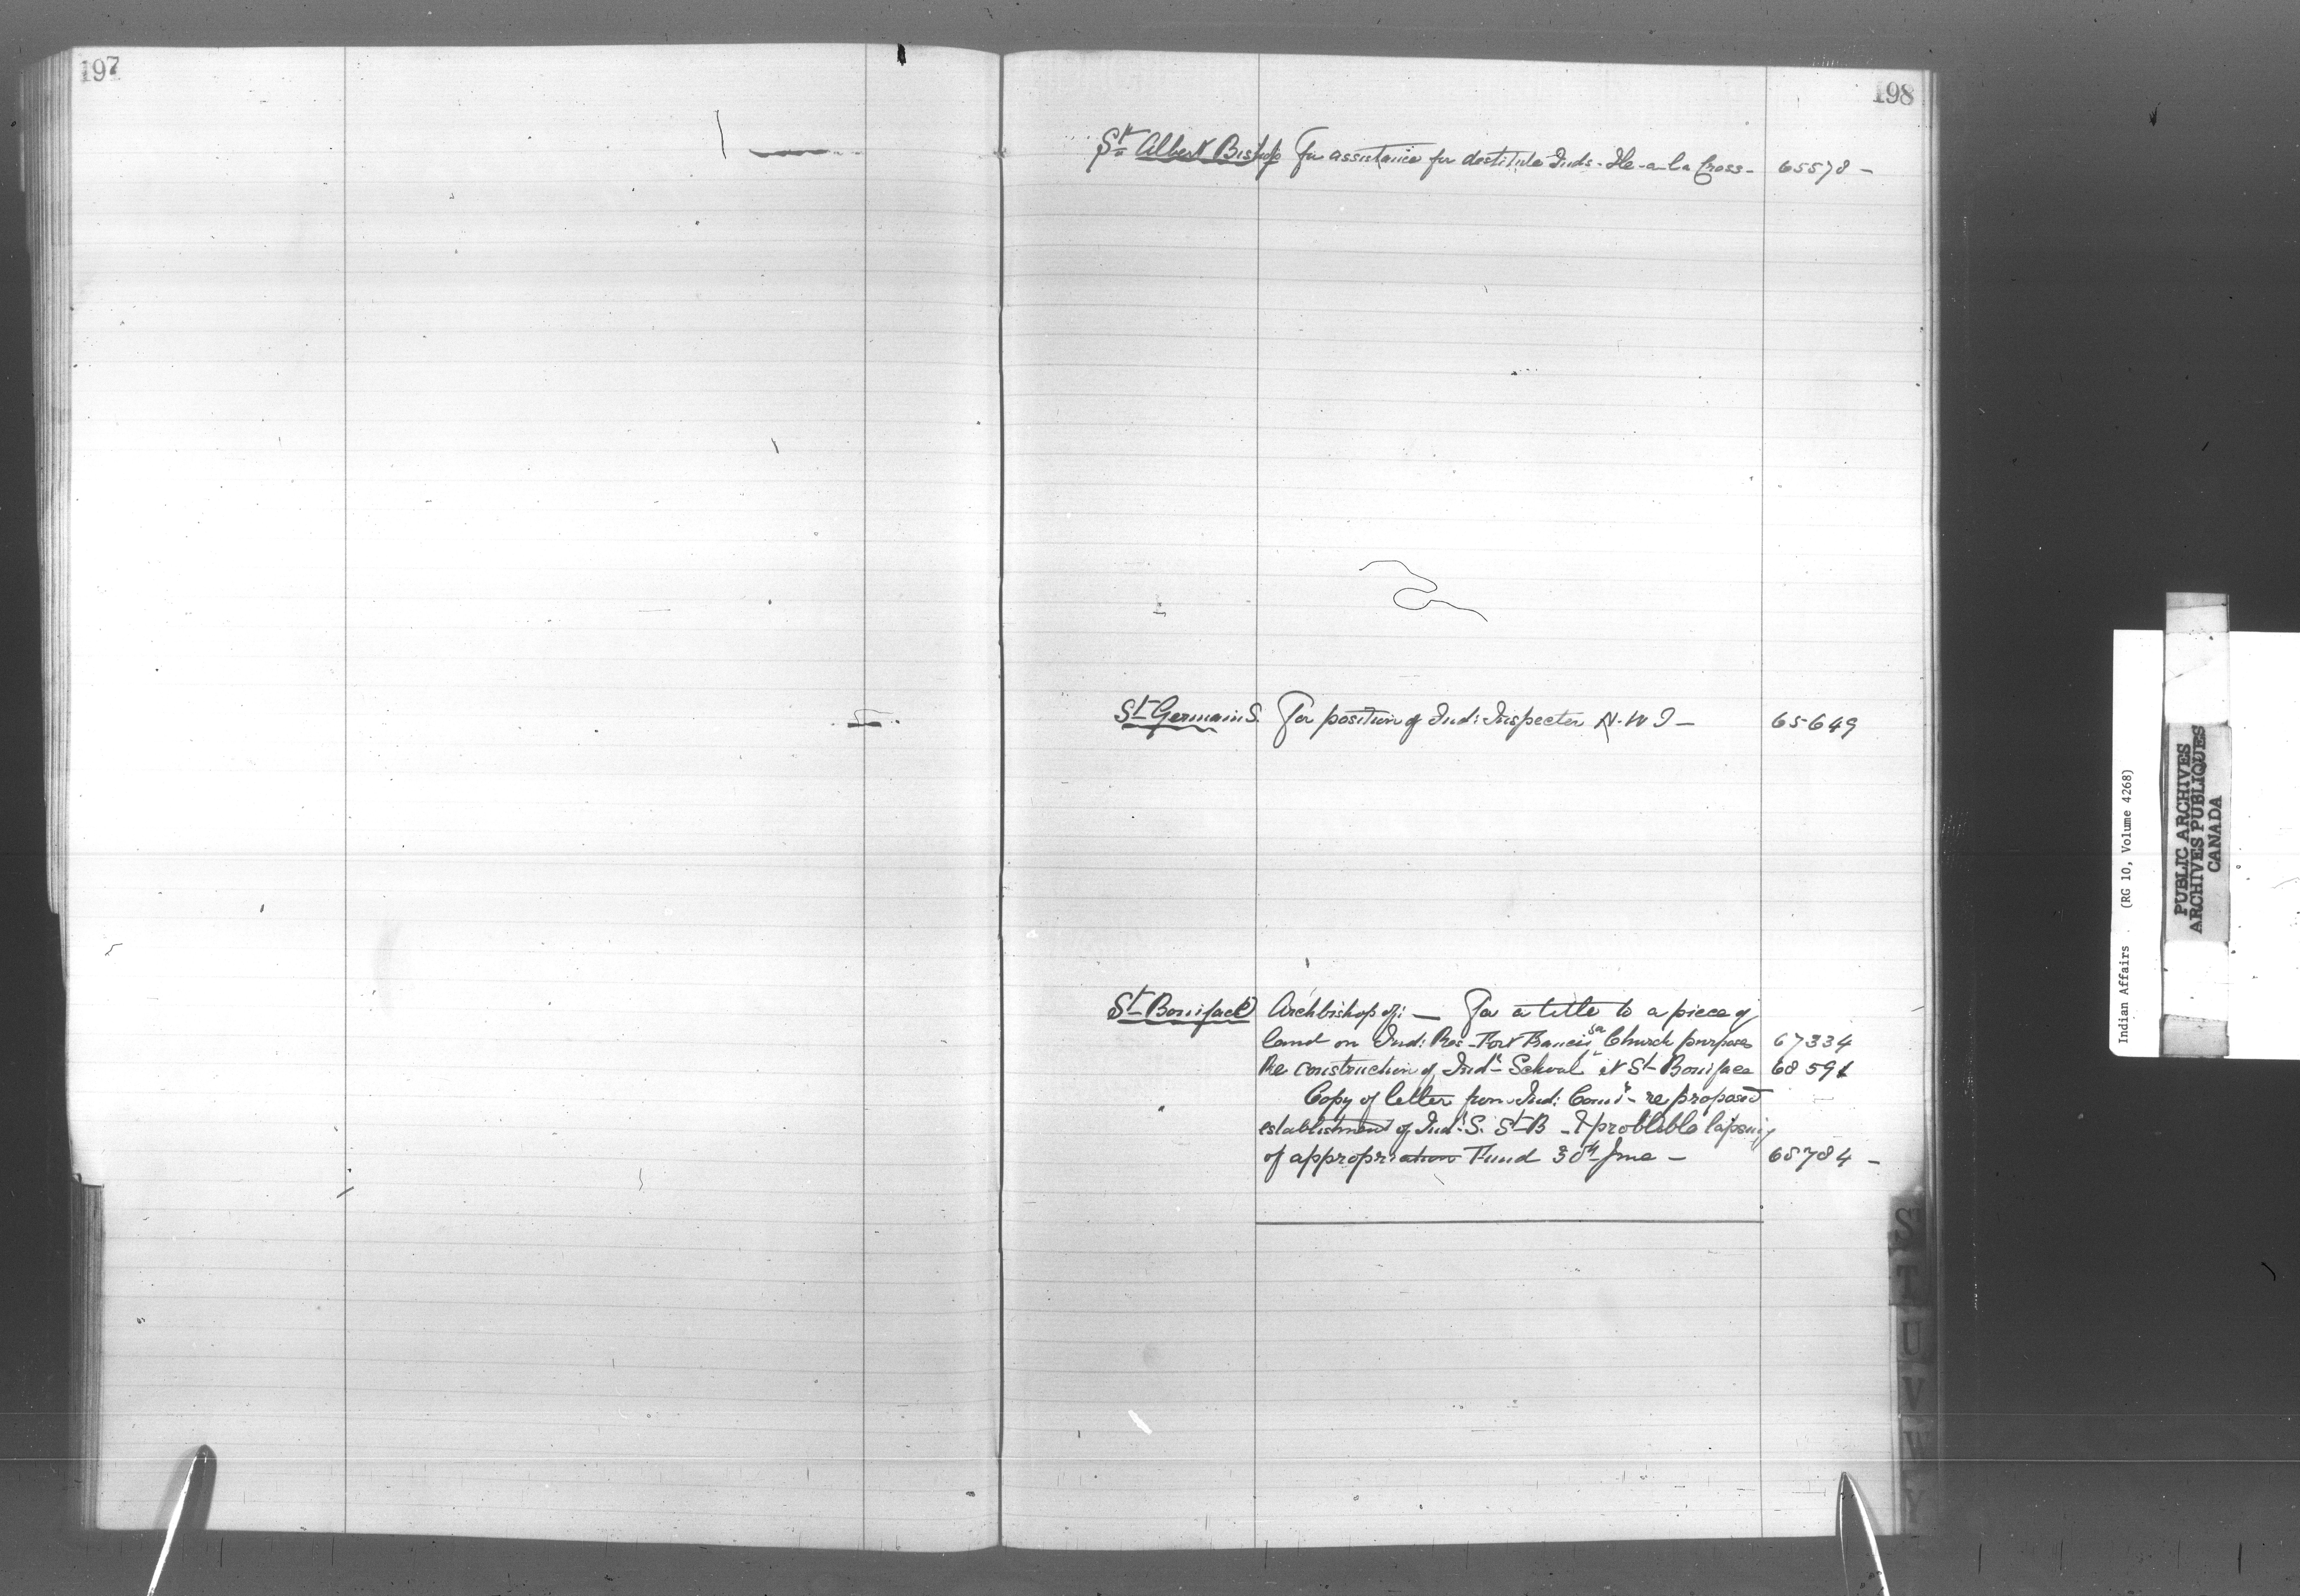 197
198
St Albert Bishop For assistance for destitute Inds. Ile-a-la Cross- 65578 -
St Germain S. For position of Ind: Inspector N.W T - 65649
St Boniface Archbishop of: - For a title to a piece of
land on Ind: Res - Fort Francis for Church purposes 67334
Re construction of Indl School at St Boniface 68591
Copy of letter from Ind: Comr - re proposed
establishment of Indl S. St B - & problible lapsing
of appropriation Fund 30th June - 68784 -
S
T
U
V
W
Y
Indian Affairs . (RG 10, Volume 4268)
PUBLIC ARCHIVES
ARCHIVES PUBLIQUES
CANADA